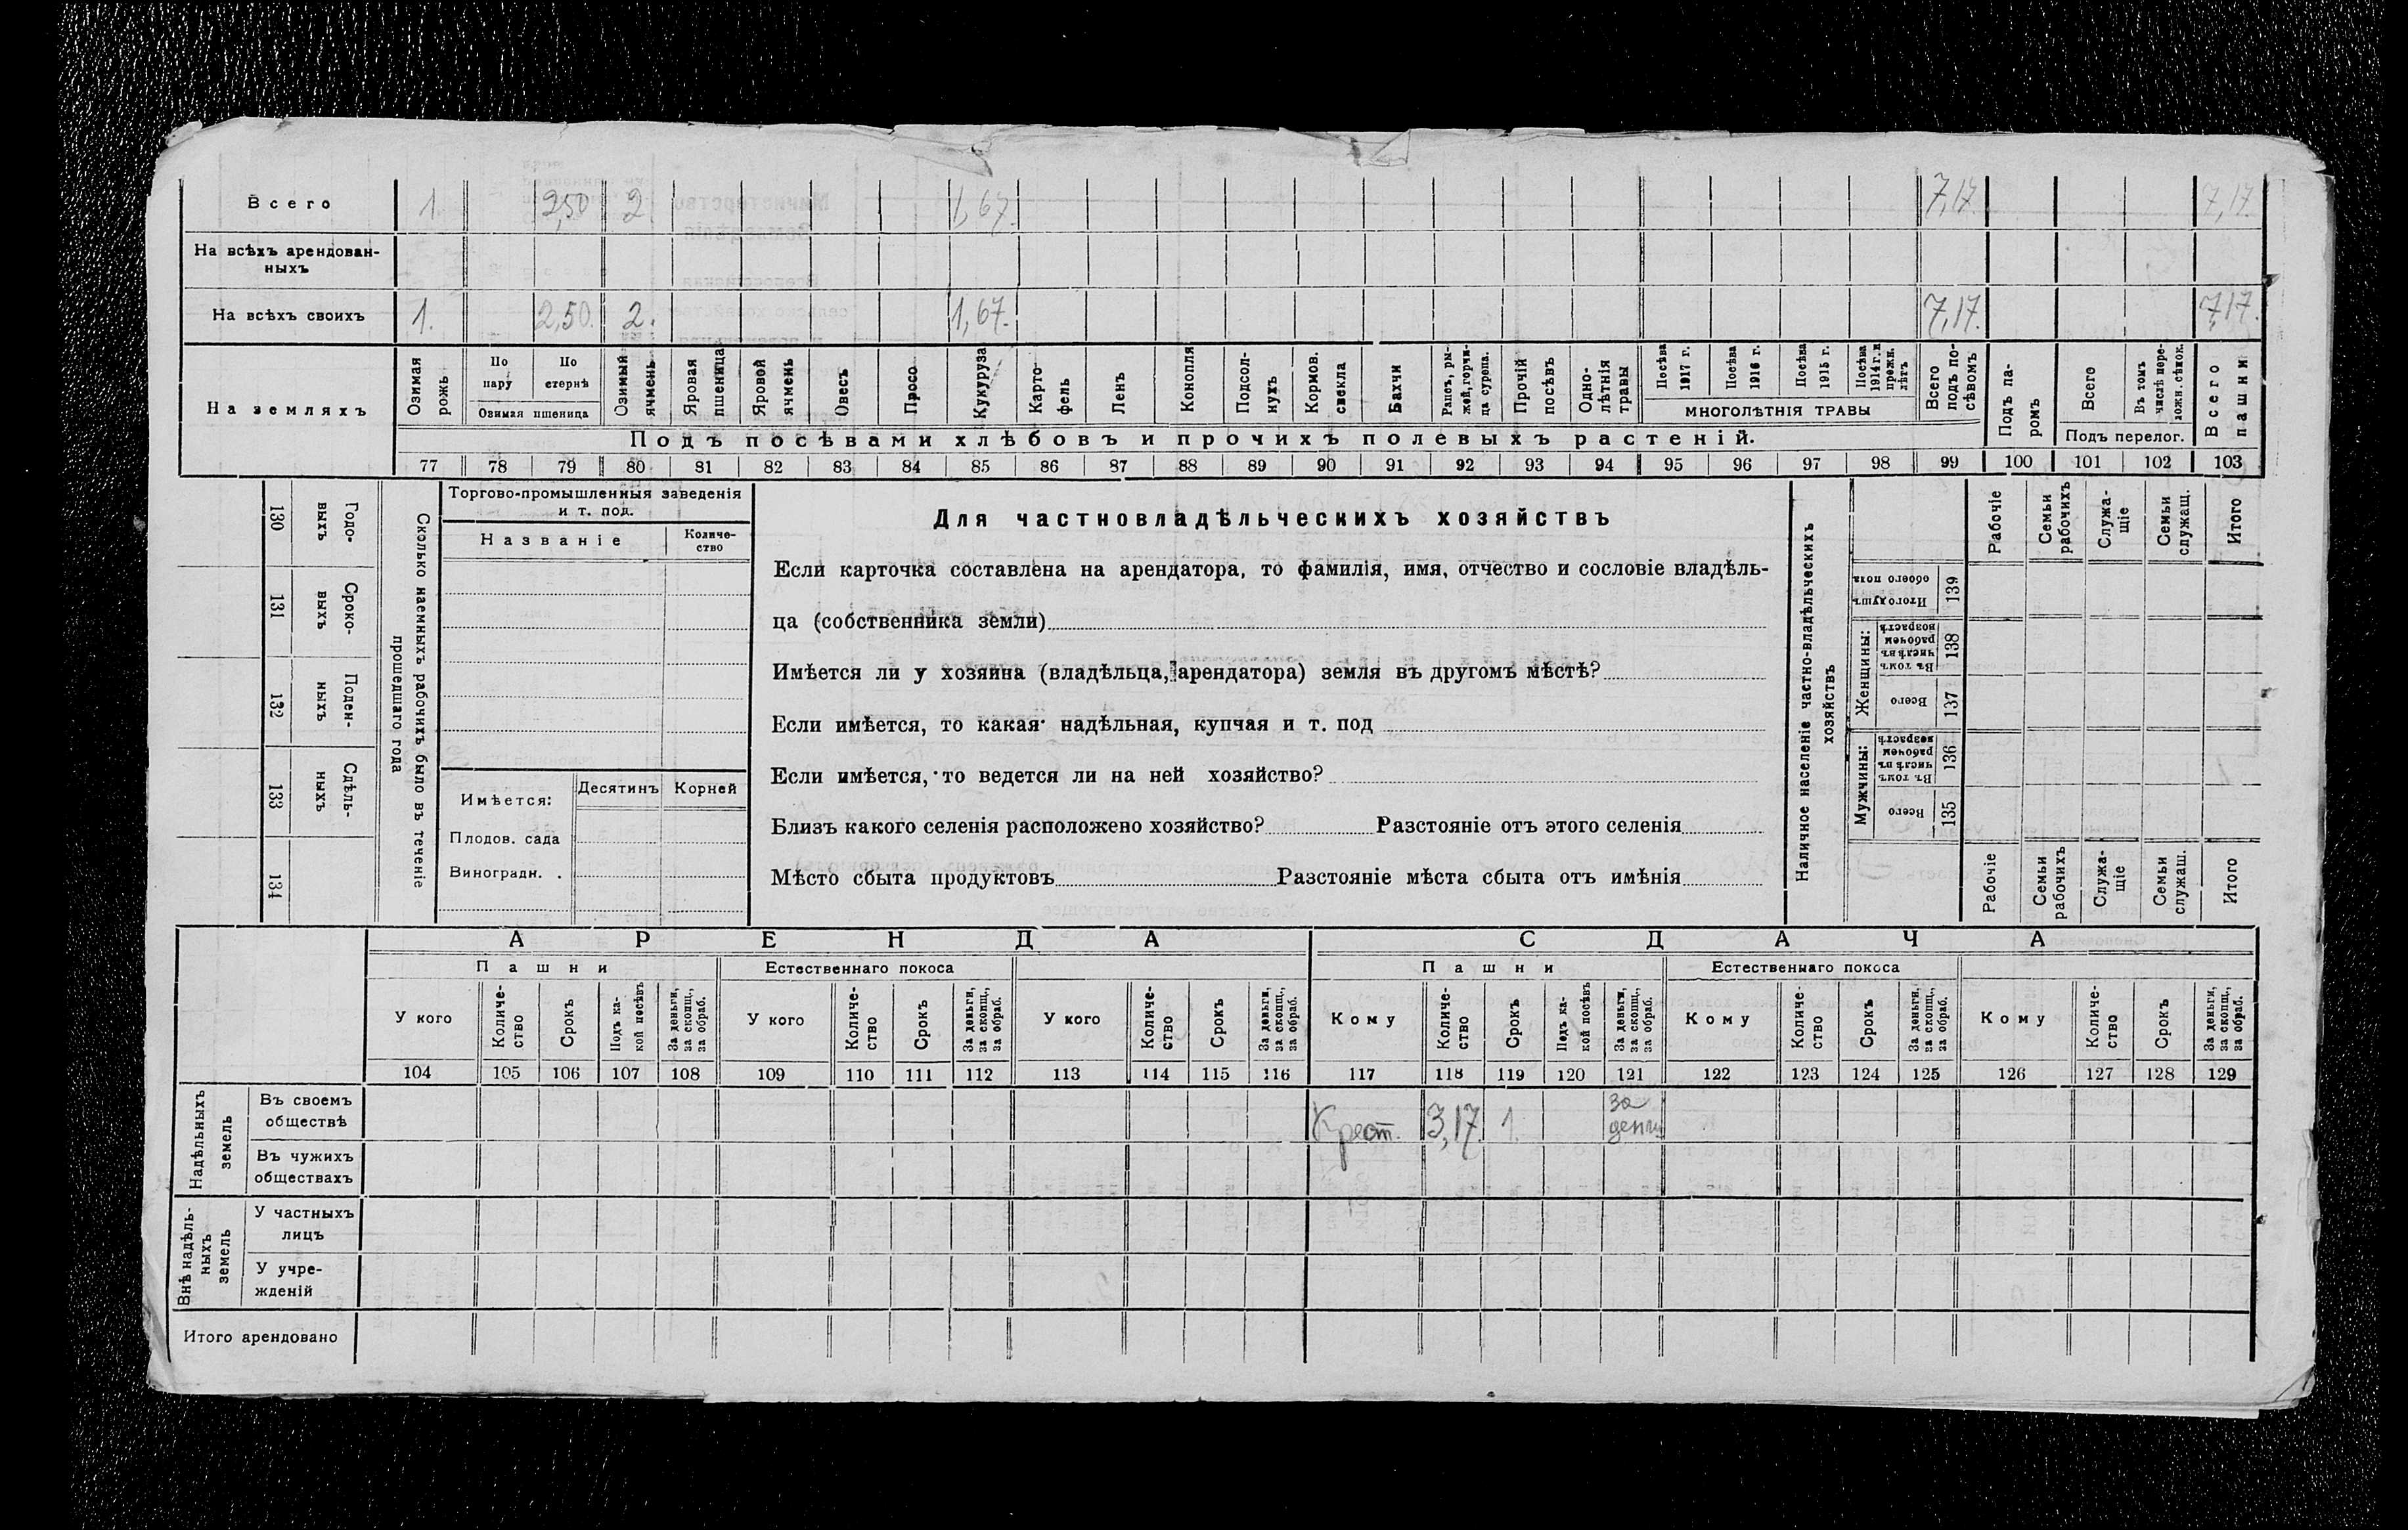 Всего 1. 2,50 2. 1,67. 7,17 7,17.
На всѣхъ арендован-
ныхъ
На всѣхъ своихъ 1. 2,50. 2. 1,67. 7,17. 7,17.
На земляхъ
Озимая рожь
По пару
По стернѣ
Озимая пшеница
Озимый ячмень
Яровая пшеница
Яровой ячмень
Овесъ
Просо
Кукуруза
Карто-
фель
Ленъ
Конопля
Подсол-
нухъ
Кормов.
свекла
Бахчи
Рапсъ, ры-
жей, горчи-
ца сурепа.
Прочій
посѣвъ
Одно-
лѣтнія
травы
Посѣва
1917 г.
Посѣва
1916 г.
Посѣва
1915 г.
Посѣва
1914 г. и
прежн.
лѣтъ
МНОГОЛѢТНІЯ ТРАВЫ
Всего
подъ по-
сѣвомъ
Подъ па-
ромъ
Всего
Въ томъ
числѣ пере-
ложн. сѣнок.
Подъ перелог.
Всего
пашни
Подъ посѣвами хлѣбовъ и прочихъ полевыхъ растеній.
77 78 79 80 81 82 83 84 85 86 87 88 89 90 91 92 93 94 95 96 97 98 99 100 101 102 103
130 Годо-
выхъ
131 Сроко-
выхъ
132 Поден-
ныхъ
133 Сдѣль-
ныхъ
134
Сколько наемныхъ рабочихъ было въ теченіе
прошедшаго года
Торгово-промышленныя заведенія
и т. под.
Названіе
Количе-
ство
Имѣется:
Десятинъ
Корней
Плодов. сада
Виноградн. .
Для частновладѣльческихъ хозяйствъ
Если карточка составлена на арендатора, то фамилія, имя, отчество и сословіе владѣль-
ца (собственника земли)
Имѣется ли у хозяина (владѣльца, арендатора) земля въ другомъ мѣстѣ?
Если имѣется, то какая· надѣльная, купчая и т. под
Если имѣется, то ведется ли на ней хозяйство?
Близъ какого селенія расположено хозяйство? Разстояніе отъ этого селенія
Мѣсто сбыта продуктовъ Разстояніе мѣста сбыта отъ имѣнія
Наличное населеніе частно-владѣльческихъ
хозяйствъ
Рабочіе
Семьи
рабочихъ
Служа-
щіе
Семьи
служащ.
Итого
Итого душъ
обоего пола
139
Женщины:
Въ томъ
числѣ въ
рабочем
возрастѣ
138
Всего
137
Мужчины:
Въ томъ
числѣ въ
рабочем
возрастѣ
136
Всего
135
Рабочіе
Семьи
рабочихъ
Служа-
щіе
Семьи
служащ.
Итого
АРЕНДА СДАЧА
Пашни Естественнаго покоса Пашни Естественнаго покоса
У кого
Количе-
ство
Срокъ
Подъ ка-
кой посѣвъ
За деньги,
за скопщ.,
за обраб.
У кого
Количе-
ство
Срокъ
За деньги,
за скопщ.,
за обраб.
У кого
Количе-
ство
Срокъ
За деньги,
за скопщ.,
за обраб.
Кому
Количе-
ство
Срокъ
Подъ ка-
кой посѣвъ
За деньги,
за скопщ.,
за обраб.
Кому
Количе-
ство
Срокъ
За деньги,
за скопщ.,
за обраб.
Кому
Количе-
ство
Срокъ
За деньги,
за скопщ.,
за обраб.
104 105 106 107 108 109 110 111 112 113 114 115 116 117 118 119 120 121 122 123 124 125 126 127 128 129
Надѣльныхъ
земель
Въ своемъ
обществѣ
Крест. 3,17. 1. за
деньги
Въ чужихъ
обществахъ
Внѣ надѣль-
ныхъ
земель
У частныхъ
лицъ
У учре-
жденій
Итого арендовано